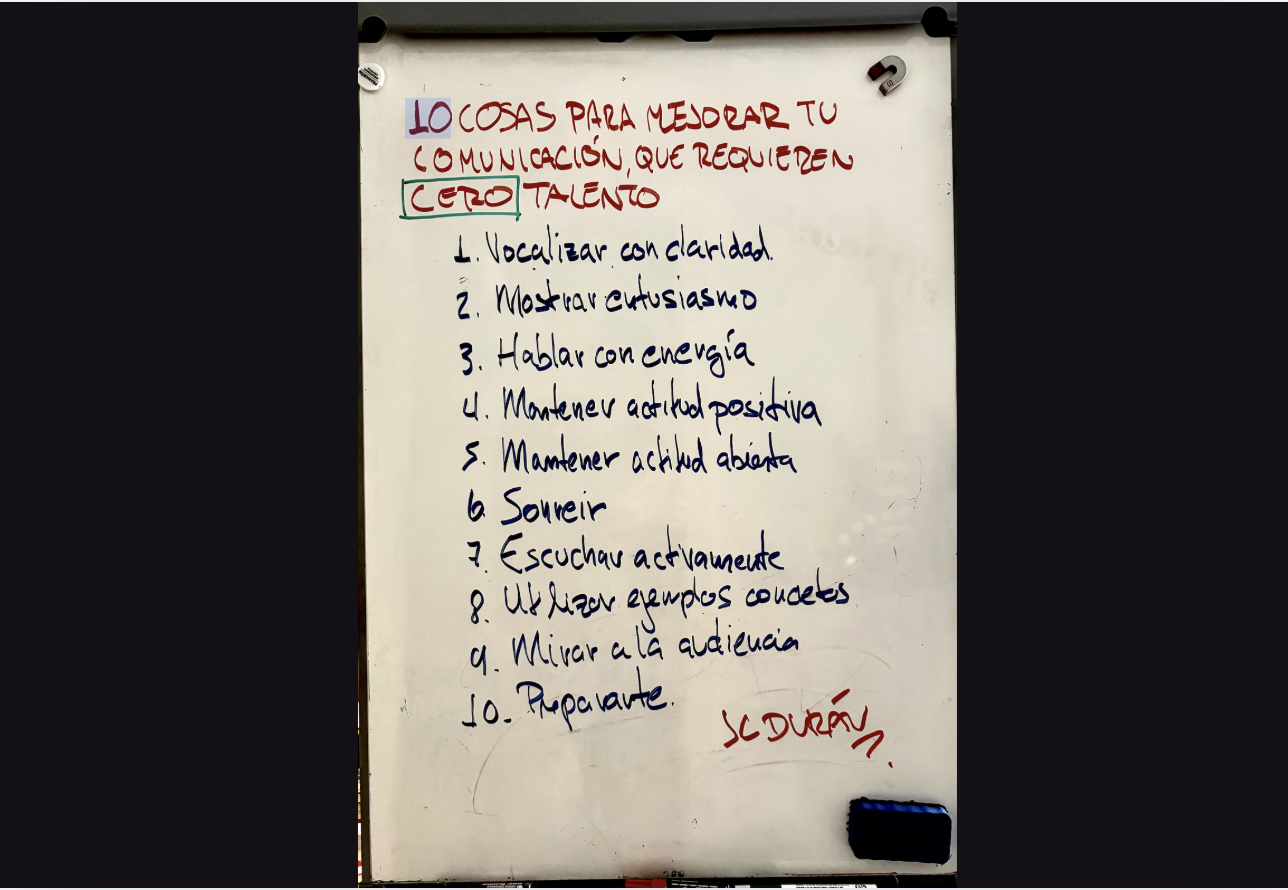 10 COSAS PARA MEJORAR TU
COMUNICACIÓN, QUE REQUIEREN
CERO TALENTO
1. Vocalizar con claridad.
2. Mostrar entusiasmo
3. Hablar con energía
4. Mantener actitud positiva
5. Mantener actitud abierta
6. Sonreir
7. Escuchar activamente
8. Utilizar ejemplos concretos
9. Mirar a la audiencia
10. Prepararte.
SC DURÁN